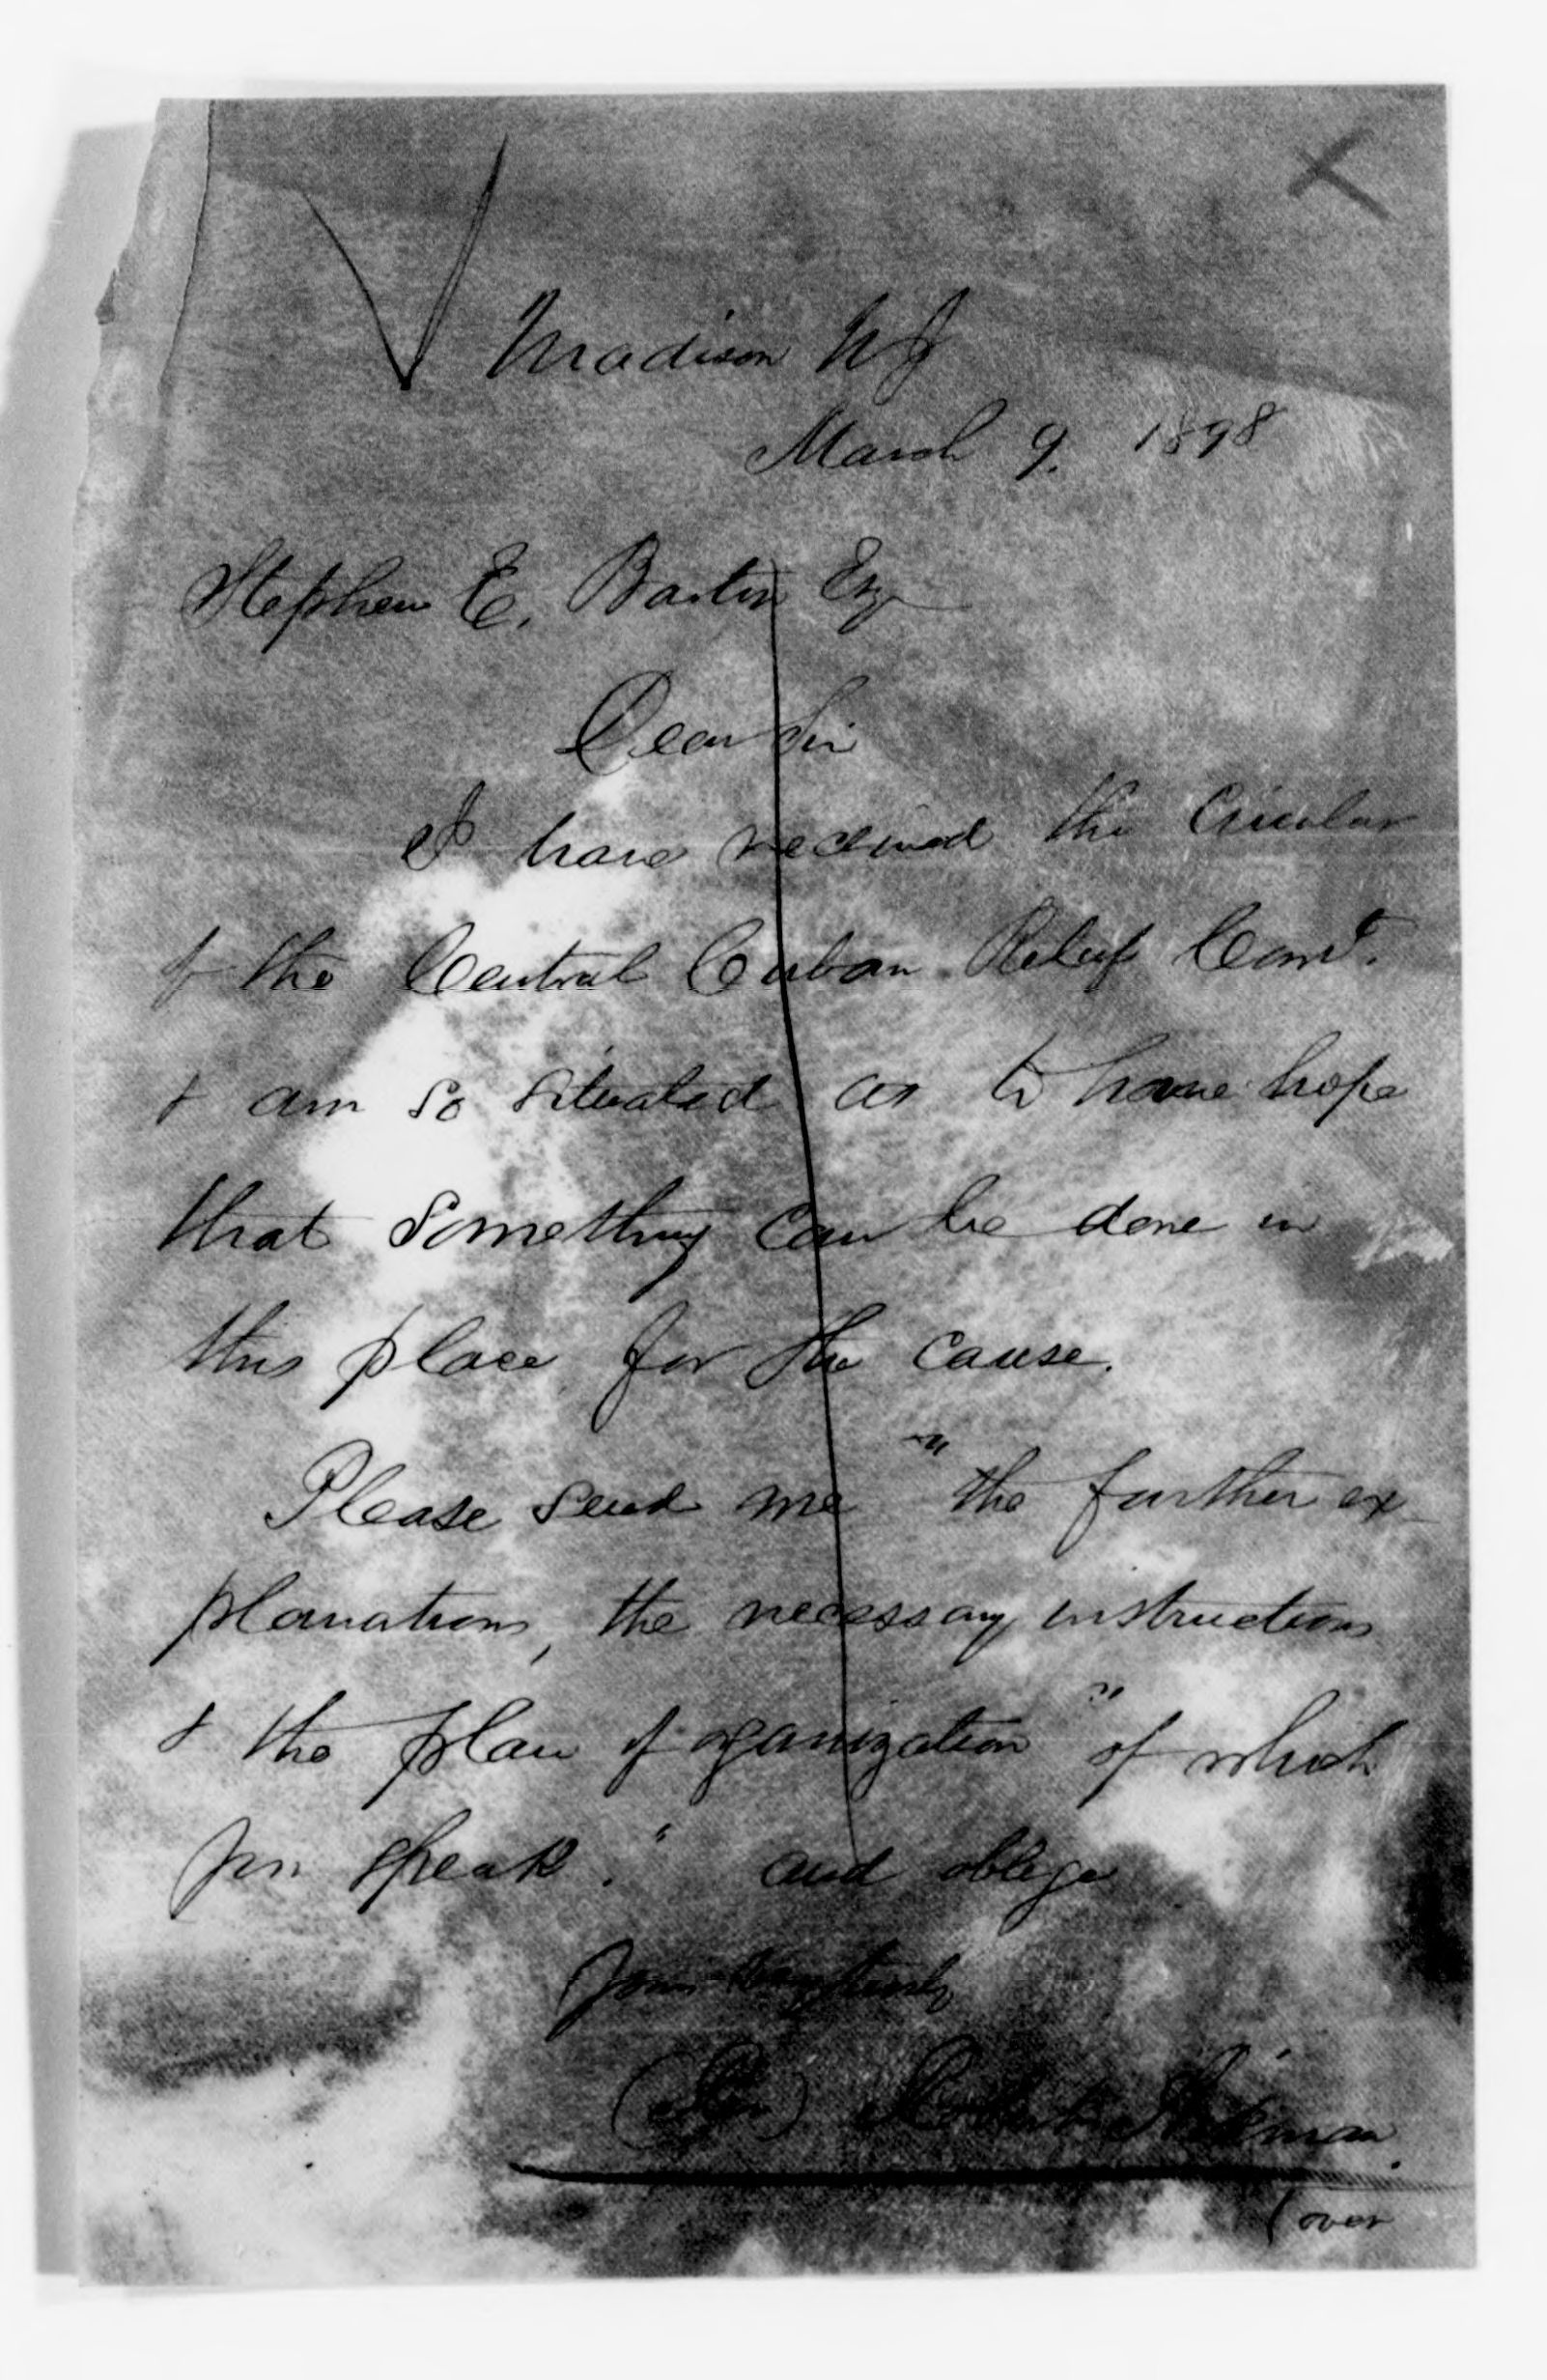 Madison N J
March 9. 1898
Stephen E. Barton Esq
Dear Sir
I have received the Circular
of the Central Cuban Relief Comt.
& am so situated as to have hope
that something can be done in
this place for the cause.
Please send me "the further ex-
planations, the necessary instructions
& the plan of organization" of which
you speak." and oblige
Yours
Robert Aikman
(over